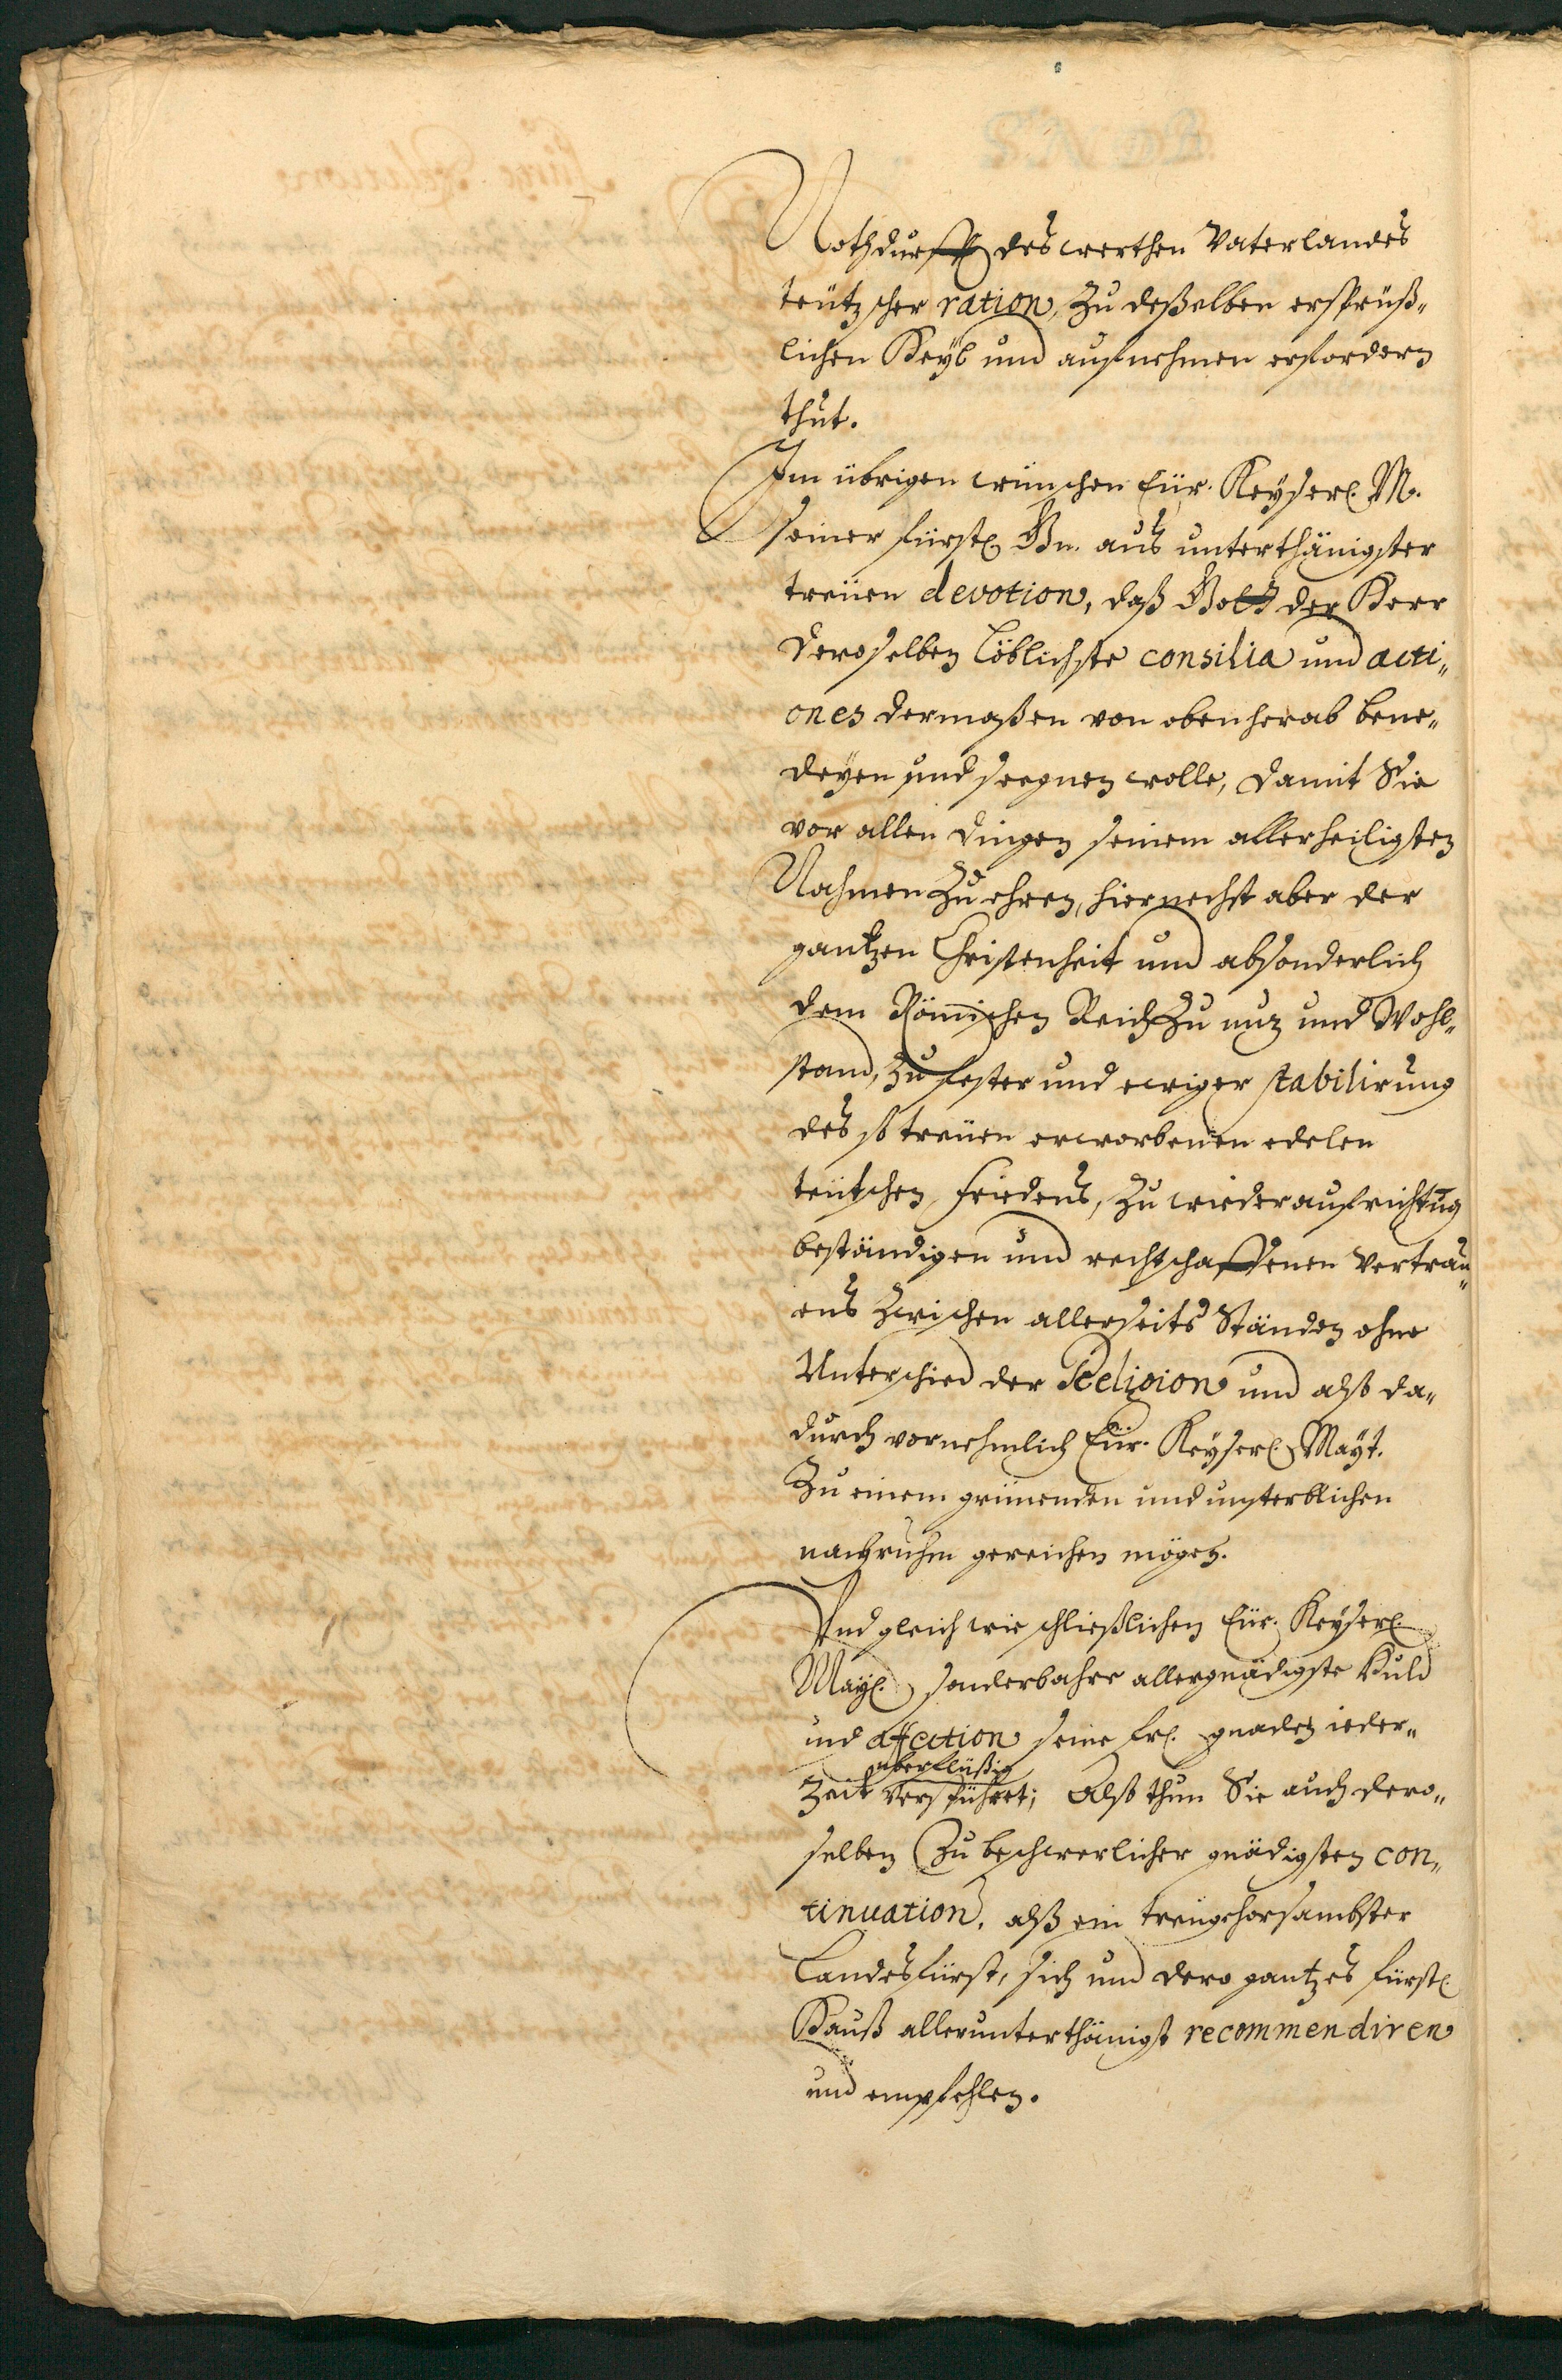 Nothdurfft des werthen Vaterlandes
teützscher nation, zu deßelben ersprüß„
lichen Heyl und aufnehmen erfordern
thut.
Im übrigen wünschen Eür. Keyserl. M.
seiner fürstl. Gn. aus unterthänigster
treüen devotion, daß Gott der Herr
deroselben löblichste consilia und acti„
ones dermaßen von oben herab bene„
deyen und seegnen wolle, damit Sie
vor allen dingen seinem allerheiligsten
Nahmen zu ehren, hiernechst aber der
gantzen Christenheit und absonderlich
dem Römischen Reich zu nuz und Wohl„
stand, zu fester und ewiger stabilirung
des so treüen erworbenen edelen
teütschen friedens, zu wiederaufrichtūg
beständigen und rechtschaffenen Vertrau„
ens zwischen allerseits Ständen ohne
Unterschied der Religion und alß da„
durch vornehmlich Eür. Keyserl. Mayt.
zu einem grünenden und unsterblichen
nachruhm gereichen mögen.
Und gleich wie schließlichen Eür. Keyserl.
Mayt. sonderbahre allergnädigste Huld
und affection seine frl. gnaden ieder„
überflüßig
zeit verspühret; Alß thun Sie auch dero„
selben zu beschwerlicher gnädigsten con„
tinuation, alß ein treügehorsambster
Landesfürst, sich und dero gantzes fürstl.
Hauß allerunterthänigst recommendiren
und empfehlen.